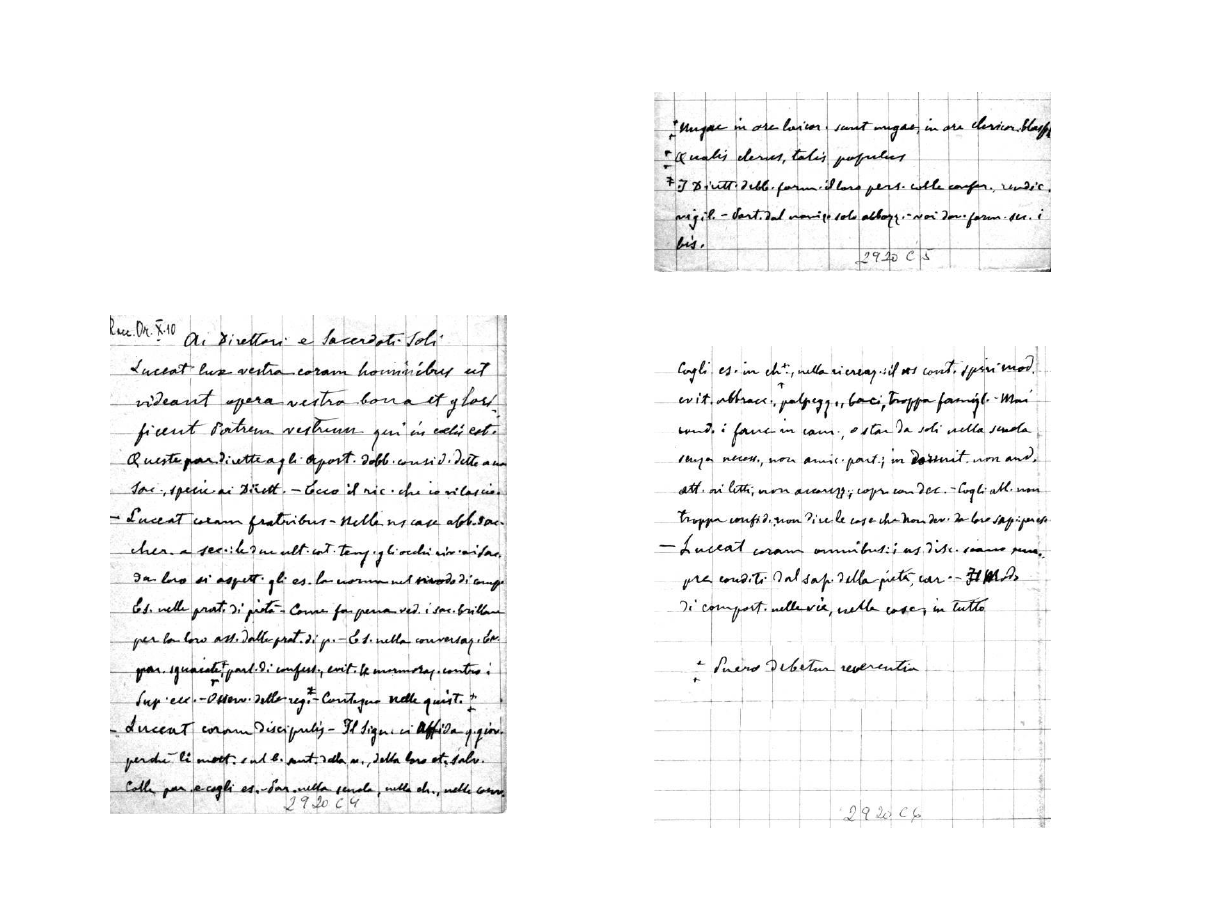 Racc. Or. X.10
Ai Direttori e Sacerdoti soli
Luceat lux vestra coram hominibus ut
videant opera vestra bona et glori-
ficent Patrem vestrum qui in coelis est.
Queste par. dirette agli Apost. dobb. consid. dette a noi
Sac., specie ai Dirett. - Ecco il ric. che io vi lascio.
- Luceat coram fratribus - Nelle ns case abb. sac.
cher. a sec. le due ult. cat. teng. gli occhi riv. ai sac.
da loro si aspett. gli es. la norma nel modo di comp.
Es. nelle prat. di pietà - Come fa pena ved. i sac. brillare
per la loro ass. dalle prat. di p. - Es. nella conversaz. Ev.
par. sguaiate, parl. di confess., evit. le mormoraz. contro i
Sup. ecc. - Osserv. delle reg. ‡ - Contegno nelle quist. ‡
- Luceat coram discipulis - Il Sign. ci affida q. giov.
perchè li mett. sul b. sent. della v., della loro et. salv.
Colle par. e cogli es. - Par. nella scuola, nella ch., nelle conv.
2920 C4
Nugae in ore laicor. sunt nugae, in ore clericor. blasf.
Qualis clerus, talis populus
‡ I Dirett. debb. form. il loro pers. colle confer., rendic.
vigil. - Part. dal noviz. solo abbozz. - noi dov. form. sec. i
bis.
2920 C5
Cogli es. in ch., nella ricreaz. il ns cont. sprir mod.
evit. abbracc., palpegg., baci, troppa famigl. - Mai
cond. i fanc. in cam., o star da soli nella scuola
senza necess., non amic. part.; in dormit. non and.
att. ai letti, non accarezz., copr. con dec. - Cogli all. non
troppa confid., non dire le cose che non dev. da loro sapersi
- Luceat coram omnibus: i ns. disc. siano sem-
pre conditi dal sap. della pietà, car. - Il Modo
di comport. nelle vie, nelle case, in tutto
‡ Puero debetur reverentia
2920 C6